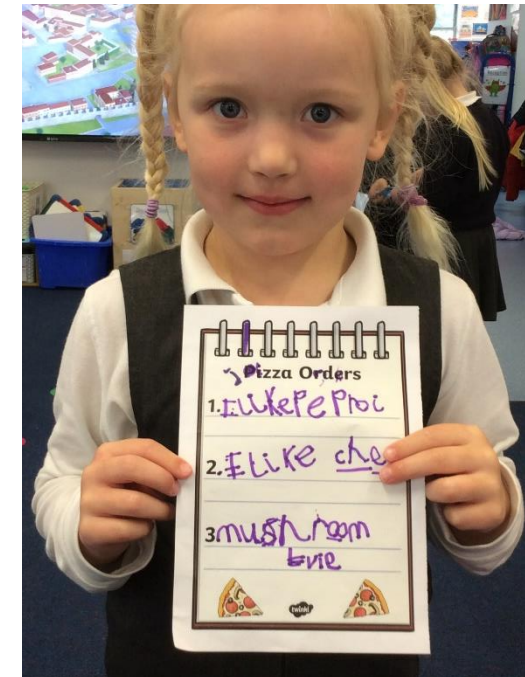 Pizza Orders
1. I likePe Proi
2. I like che
3 mushroom
Evie
twinkl